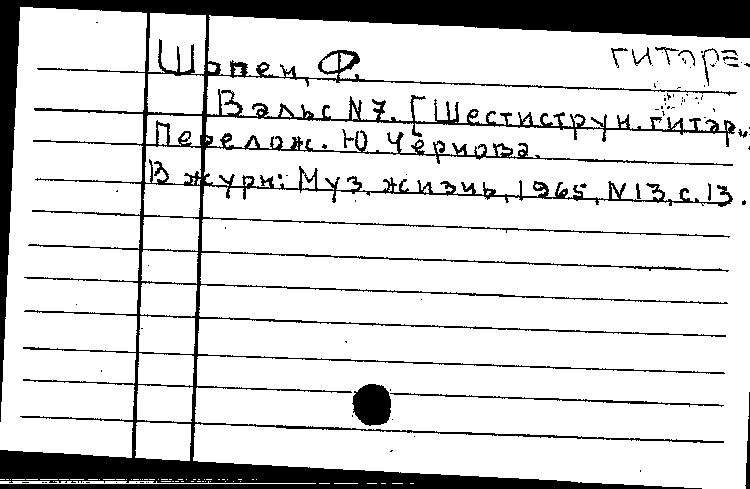 гитара.
Шопен, Ф.
Вальс N7. [Шестиструн. гитар.]
Перелож. Ю. Чернова.
В журн: Муз. жизнь, 1965, N13, с.13.